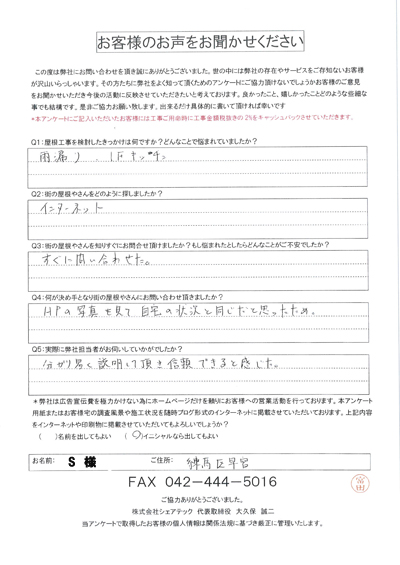 お客様のお声をお聞かせください
この度は弊社にお問い合わせを頂き誠にありがとうございました。世の中には弊社の存在やサービスをご存知ないお客様
が沢山いらっしゃいます。その方たちに弊社をよく知って頂くためのアンケートにご協力頂けないでしょうかお客様のご意見
をお聞かせいただき今後の活動に反映させていただきたいと考えております。良かったこと、嬉しかったことどのような些細な
事でも結構です。是非ご協力お願い致します。出来るだけ具体的に書いて頂ければ幸いです
*本アンケートにご記入いただいたお客様には工事ご用命時に工事金額税抜きの2%をキャッシュバックさせていただきます。
Q1:屋根工事を検討したきっかけは何ですか?どんなことで悩まれていましたか?
雨漏り、1Fキッチン
Q2:街の屋根やさんをどのように探しましたか?
インターネット
Q3:街の屋根やさんを知りすぐにお問合せ頂けましたか?もし悩まれたとしたらどんなことがご不安でしたか?
すぐに問い合わせた。
Q4:何が決め手となり街の屋根やさんにお問い合わせ頂きましたか?
HPの写真を見て自宅の状況と同じだと思ったため。
Q5:実際に弊社担当者がお伺いしていかがでしたか?
分かり易く説明して頂き信頼できると感じた。
*弊社は広告宣伝費を極力かけない為にホームページだけを頼りにお客様への営業活動を行っております。本アンケート
用紙またはお客様宅の調査風景や施工状況を随時ブログ形式のインターネットに掲載させていただいております。上記内容
をインターネットや印刷物に掲載させていただいてもよろしいでしょうか?
( )名前を出してもよい (○)イニシャルなら出してもよい
お名前: S 様 ご住所: 練馬区早宮
FAX 042-444-5016
ご協力ありがとうございました。
株式会社シェアテック 代表取締役 大久保 誠二
当アンケートで取得したお客様の個人情報は関係法規に基づき厳正に管理いたします。